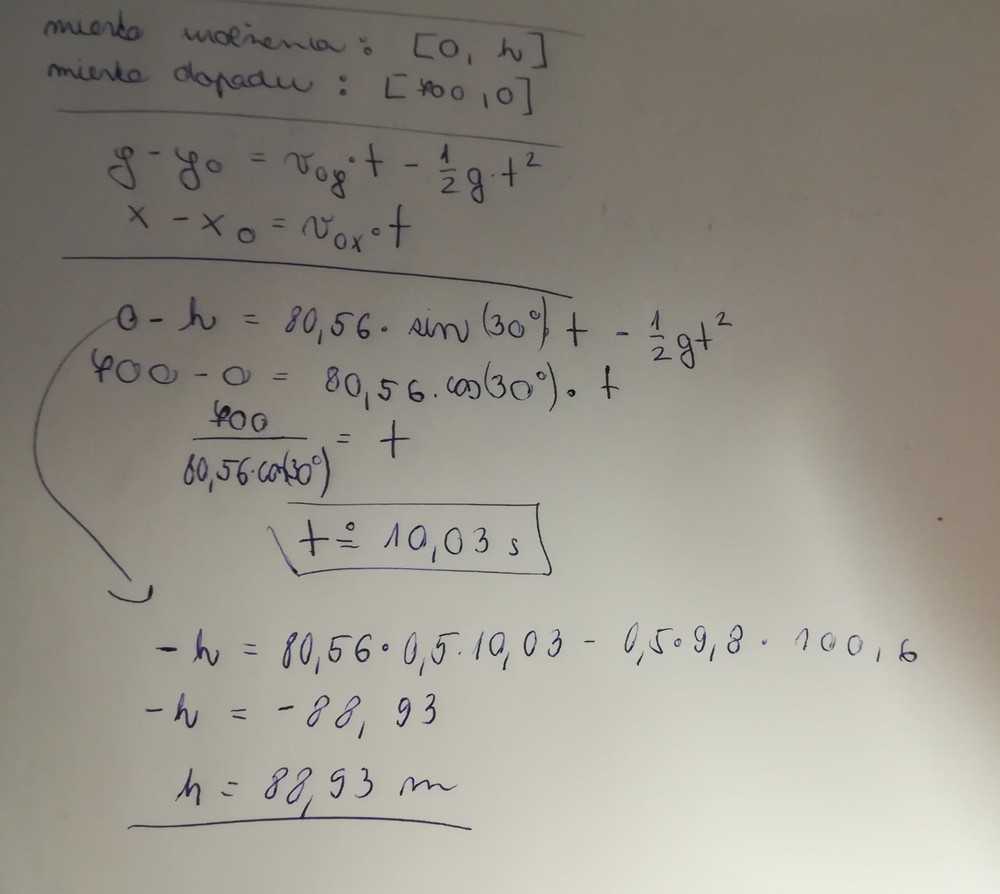 miesto vrženia : [0, h]
miesto dopadu : [700, 0]
y - y₀ = v₀y · t - 1/2 g · t²
x - x₀ = v₀x · t
0 - h = 80,56 · sin(30°) t - 1/2 gt²
700 - 0 = 80,56 · cos(30°) · t
700/80,56·cos(30°) = t
t ≐ 10,03 s
-h = 80,56 · 0,5 · 10,03 - 0,5 · 9,8 · 100,6
-h = -88,93
h = 88,93 m